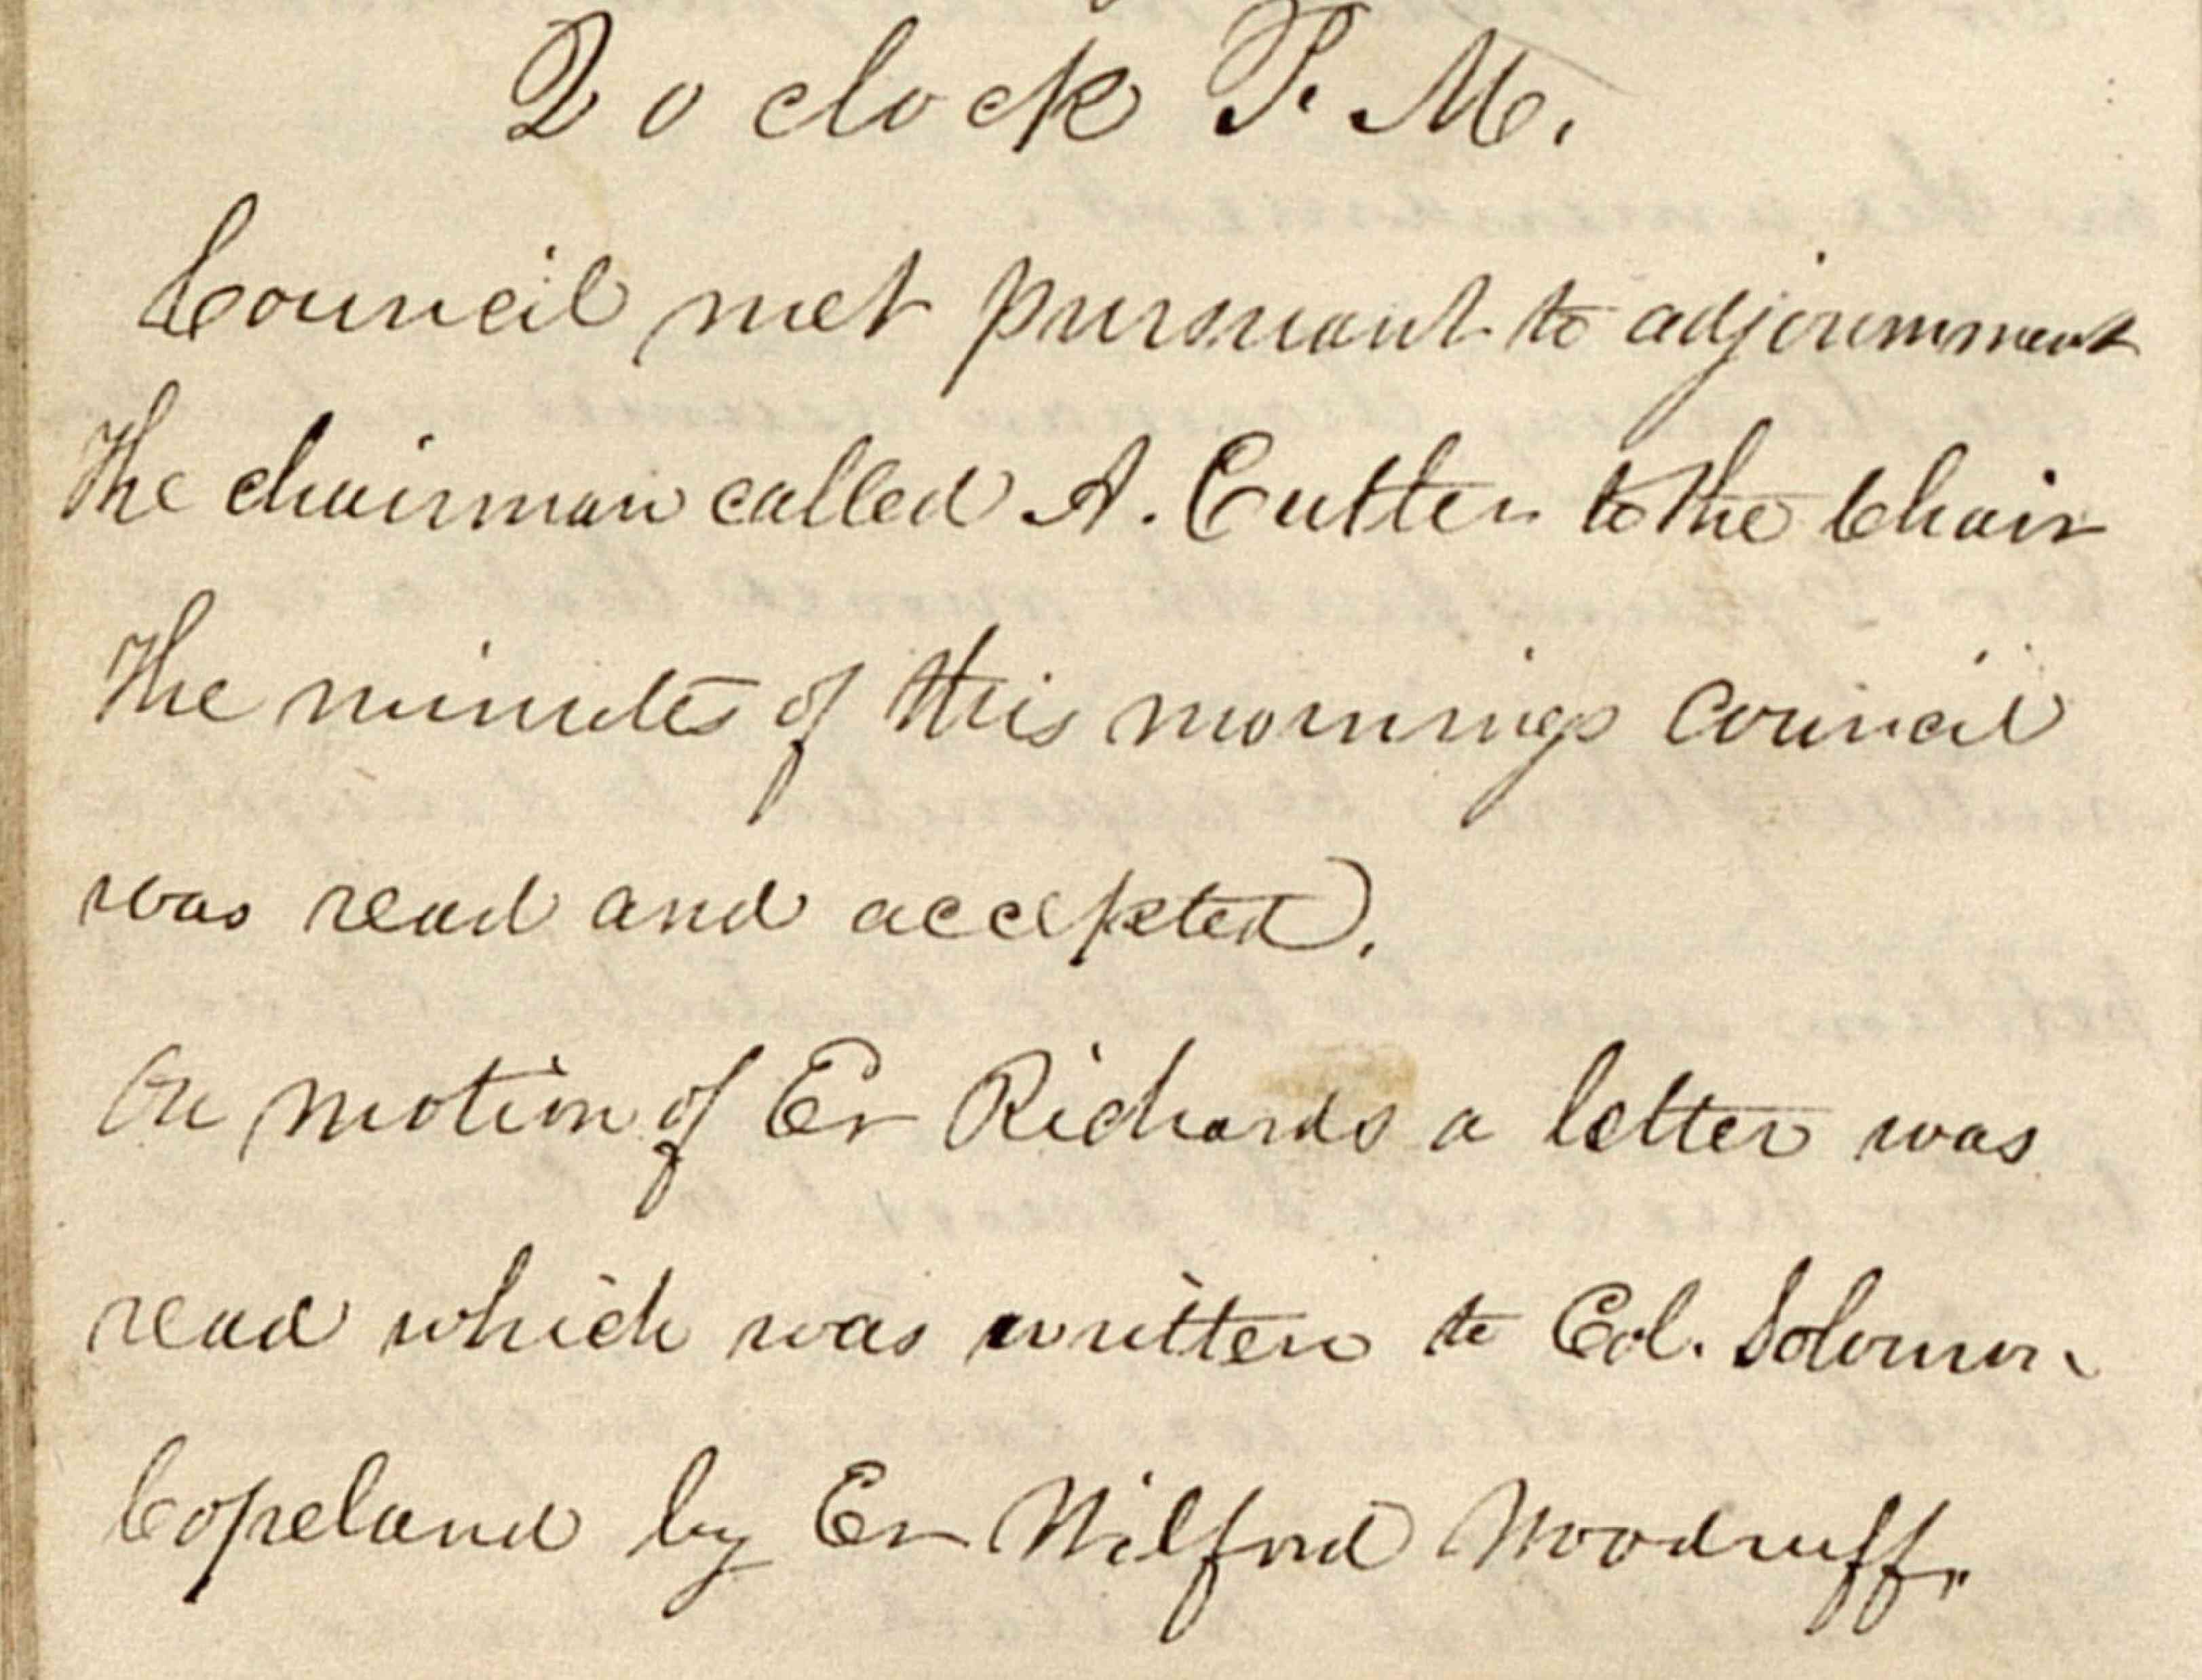 2 o clock P. M.
Council met pursuant to adjournment
The chairman called A. Cutler to the Chair
The minutes of this mornings council
was read and accepted.
On motion of Er Richards a letter was
read which was written to Col. Solomon
Copeland by Er Wilford Woodruff.